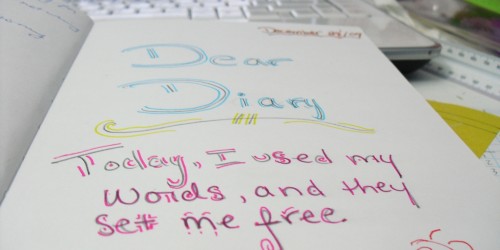 Dear
Diary
Today, I used my
words, and they
set me free.